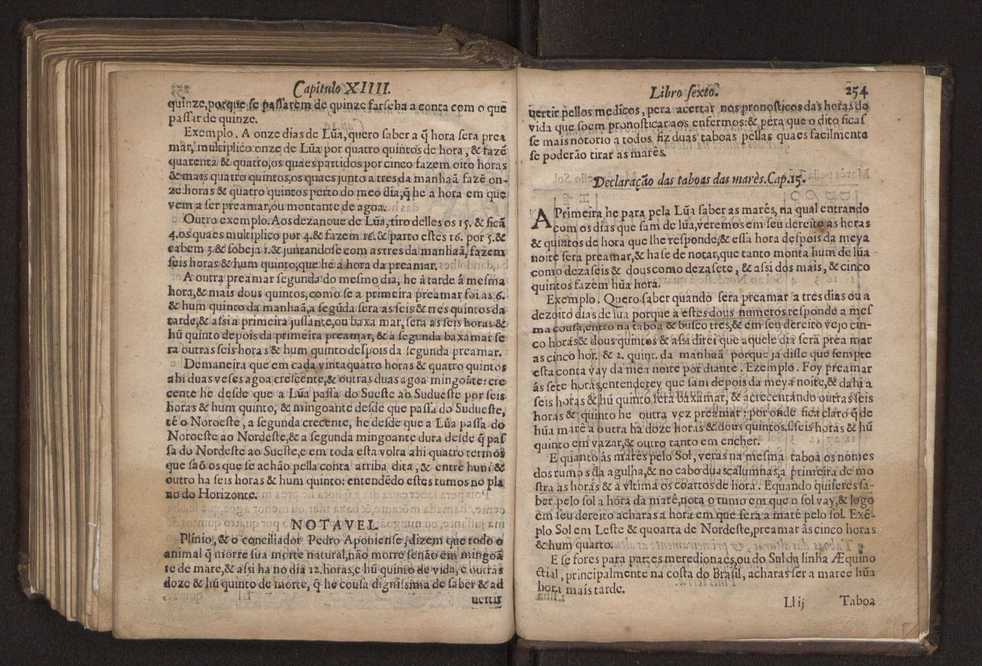 Capitulo XIIII.
quinze, porque se passarem de quinze farseha a conta com o que
passar de quinze.
Exemplo. A onze dias de Lũa, quero saber a q̃ hora sera prea
mar, multiplico onze de Lũa por quatro quintos de hora, & fazẽ
quarenta & quatro, os quaes partidos por cinco fazem oito horas
& mais quatro quintos, os quaes junto a tres da manhaã fazẽ on-
ze horas & quatro quintos perto do meo dia, q̃ he a hora em que
vem a ser preamar, ou montante de agoa.
Outro exemplo. Aos dezanoue de Lũa, tiro delles os 15. & ficã
4. os quaes multiplico por 4. & fazem 16. & parto estes 16. por 5. &
cabem 3. & sobeja 1. & juntandose com as tres da manhaã, fazem
seis horas & hum quinto, que he a hora da preamar.
A outra preamar segunda do mesmo dia, he á tarde â mesma
hora, & mais dous quintos, como se a primeira preamar foi as 6.
& hum quinto da manhaã, a segũda sera as seis & tres quintos da
tarde, & assi a primeira jusante, ou baxa mar, sera as seis horas &
hũ quinto depois da primeira preamar, & a segunda baxamar se
ra outras seis horas & hum quinto despois da segunda preamar.
Demaneira que em cada vinta quatro horas & quatro quintos
ahi duas veses agoa crescente, & outras duas agoa mingoãte: cre
cente he desde que a Lũa passa do Sueste ao Sudueste por seis
horas & hum quinto, & mingoante desde que passa do Sudueste,
té o Noroeste, a segunda crecente, he desde que a Lũa passa do
Noroeste ao Nordeste, & a segunda mingoante dura desde q̃ pas
sa do Nordeste ao Sueste, e em toda esta volta ahi quatro termos
que saõ os que se achão pella conta arriba dita, & entre hum &
outro ha seis horas & hum quinto: entendẽdo estes rumos no pla
no do Horizonte.
NOTAVEL.
Plinio, & o conciliador Pedro Aponiense, dizem que todo o
animal q̃ morre sua morte natural, não morre senão em mingoã
te de mare, & assi ha no dia 12. horas, e hũ quinto de vida, e outras
doze & hũ quinto de morte, q̃ he cousa dignissima de saber & ad
uertir
Libro sexto. 254
uertir pellos medicos, pera acertar nos pronosticos das horas do
vida que soem pronosticar aos enfermos: & pera que o dito ficas
se mais notorio a todos, fiz duas taboas pellas quaes facilmente
se poderão tirar as marès.
Declaração das taboas das marès. Cap. 15.
A Primeira he para pela Lũa saber as marès, na qual entrando
com os dias que sam de lũa, veremos em seu dereito as horas
& quintos de hora que lhe responde, & essa hora despois da meya
noite sera preamar, & hase de notar, que tanto monta hum de lũa
como dezaseis & dous como dezasete, & assi dos mais, & cinco
quintos fazem hũa hora.
Exemplo. Quero saber quando sera preamar a tres dias ou a
dezoito dias de lũa porque a estes dous numeros responde a mes
ma cousa, entro na taboa & busco tres, & em seu dereito vejo cin-
co horas & dous quintos & assi direi que aquele dia será prea mar
as cinco hor. & 2. quint. da manhaã porque ja disse que sempre
esta conta vay da mea noite por diante. Exemplo. Foy preamar
ás sete horas, entenderey que sam depois da meya noite, & dahi a
seis horas & hũ quinto sera baxamar, & acrecentando outras seis
horas & quinto he outra vez preamar: por onde fica claro q̃ de
hũa marè a outra ha doze horas & dous quintos, seis horas & hũ
quinto em vazar, & outro tanto em encher.
E quanto às marès pelo Sol, veras na mesma taboa os nomes
dos rumos da agulha, & no cabo duas calumnas, a primeira de mo
stra as horas & a vltima os coartos de hora. E quando quiseres sa-
ber pelo sol a hora da marè, nota o rumo em que o sol vay, & logo
em seu dereito acharas a hora em que sera a maré pelo sol. Exẽ-
plo Sol em Leste & quoarta de Nordeste, preamar âs cinco horas
& hum quarto.
E se fores para partes meredionaes, ou do Sul da linha Æquino
ctial, principalmente na costa do Brasil, acharas ser a maree hũa
hora mais tarde.
Llij Taboa